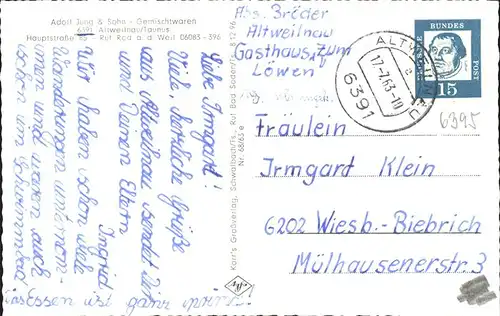 Adolf Jung & Sohn - Gemischtwaren
6391 Altweilnau/Taunus
Hauptstraße 65 - Ruf Rod a.d. Weil 06083 - 396
Ass. Bröder
Altweilnau
Gasthaus "zum
Löwen
ALTWEILNAU
17.-7.63-10
6391
DEUTSCHE
BUNDES
POST
15
6395
Fräulein
Irmgard Klein
6202 Wiesb.-Biebrich
Mülhausenerstr. 3
Karr's Großverlag, Schwalbach/Ts., Ruf Bad Soden/Ts. 8 12 96
Nr. 68/65 e
Agfa
Liebe Irmgart!
Viele herzliche Grüße
aus Altweilnau sendet Dir
und Deinen Eltern
Ingrid
Wir haben schon viele
Wanderungen unternom-
men und waren auch
schon im Schwimmbad
Das Essen ist ganz prima!